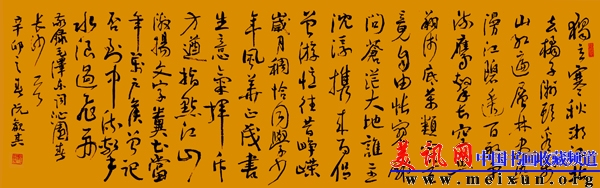 獨立寒秋湘江北
去橘子洲頭看萬
山紅遍層林盡染
漫江碧透百舸爭
流鷹擊長空魚
翔淺底萬類霜天
競自由悵寥廓
問蒼茫大地誰主
沉浮攜來百侶
曾游憶往昔崢嶸
歲月稠恰同學少
年風華正茂書
生意氣揮斥
方遒指點江山
激揚文字糞土當
年萬戶侯曾記
否到中流擊
水浪遏飛舟
毛澤東詞沁園春
長沙
辛卯之
美讯网 中国书画收藏频道
www.meixun.org